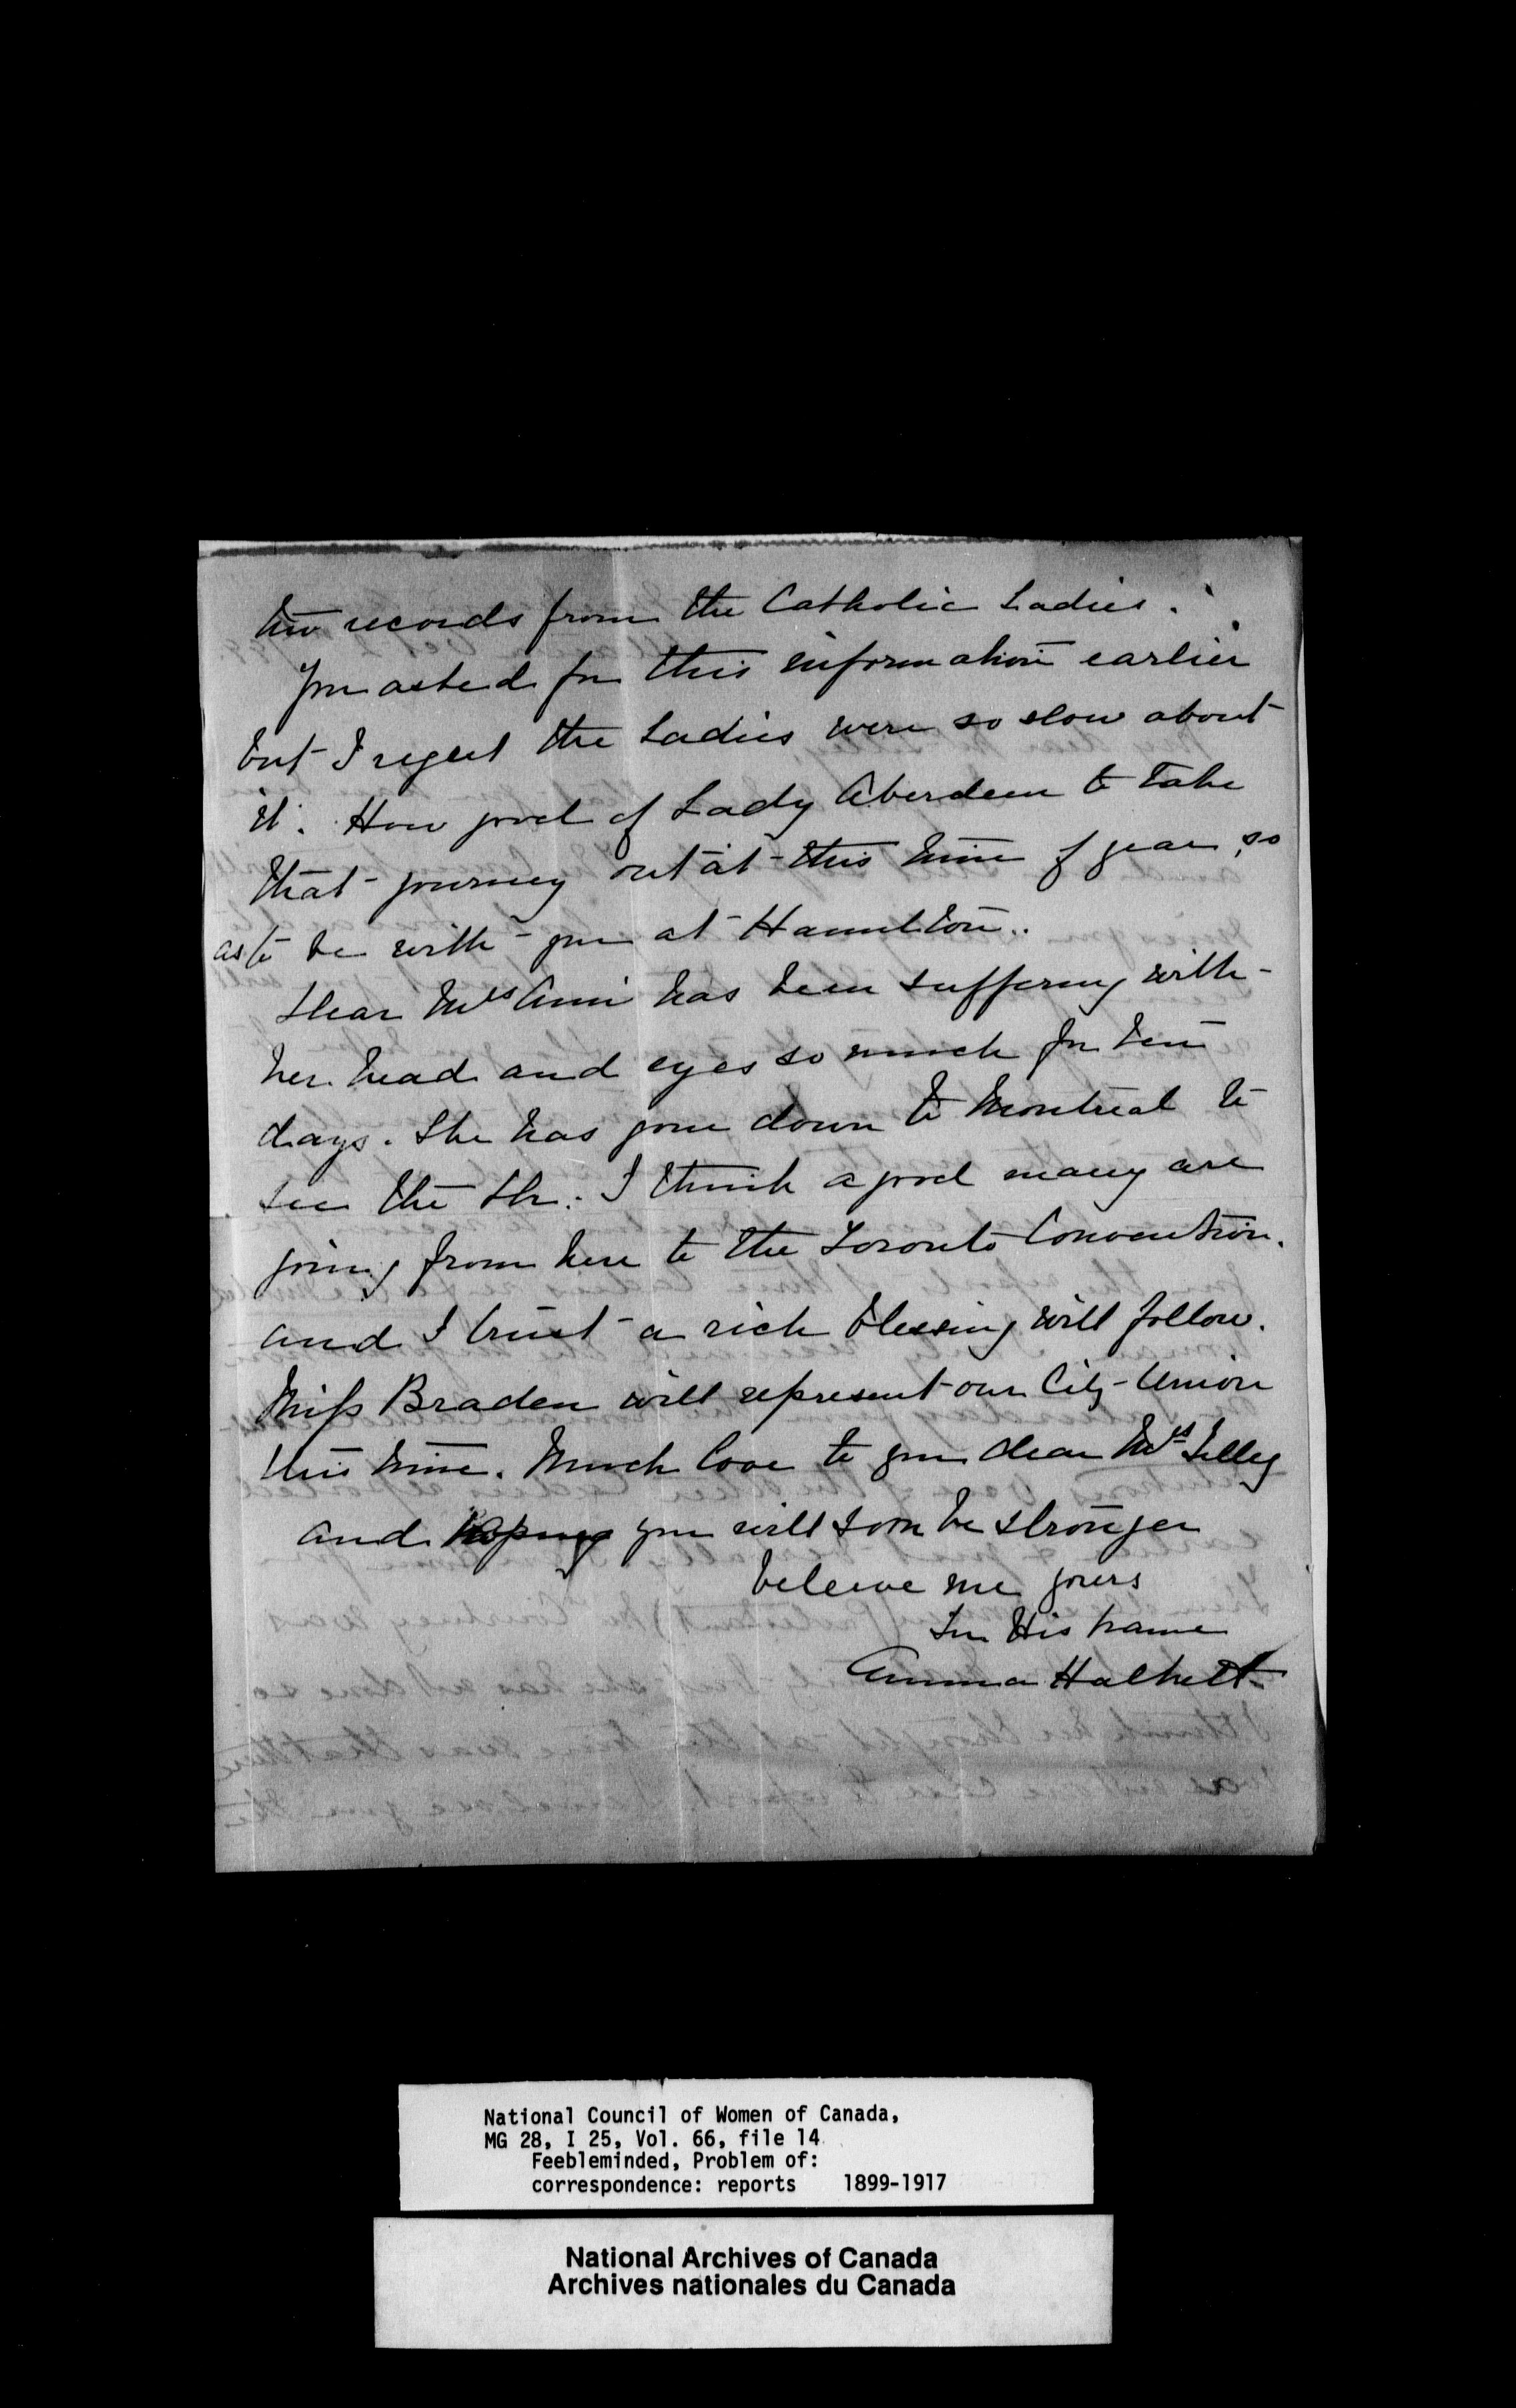 two records from the Catholic Ladies.
You asked for this information earlier
but I regret the Ladies were so slow about
it. How good of Lady Aberdeen to take
that journey out at this time of year, so
as to be with you at Hamilton.
Dear Mrs has been suffering with
her head and eyes so much for ten
days. She has gone down to Montreal to
see the Dr. I think a good many are
going from here to the Toronto Convention.
and I trust a rich blessing will follow.
Miss Braden will represent our City Union
this time. Much love to you dear Mrs Tilley
and hoping you will soon be stronger
beleive me yours
In His name
Emma Halkett
National Council of Women of Canada,
MG 28, I 25, Vol. 66, file 14
Feebleminded, Problem of:
correspondence: reports 1899-1917
National Archives of Canada
Archives nationales du Canada